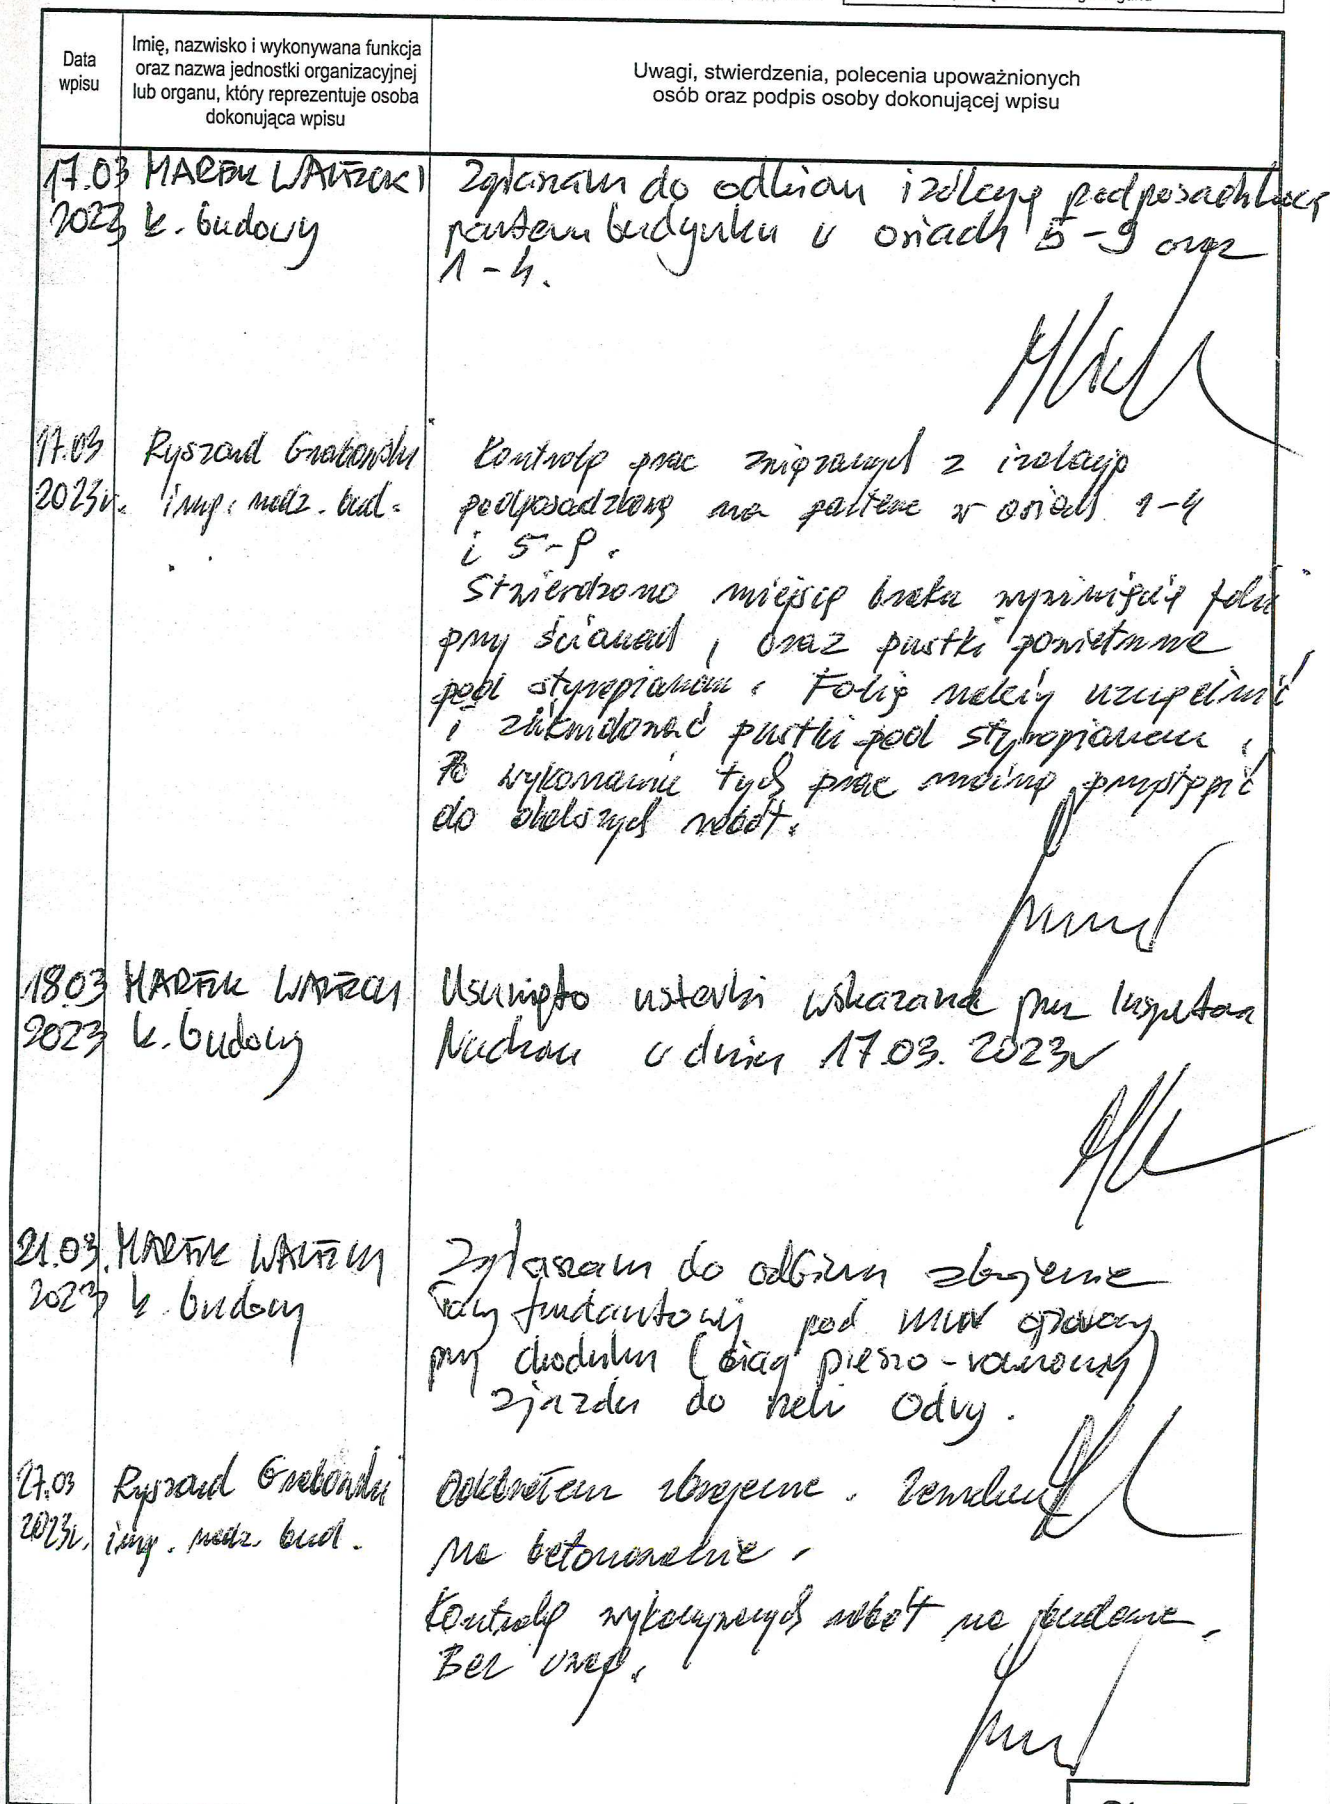 Data
wpisu
Imię, nazwisko i wykonywana funkcja
oraz nazwa jednostki organizacyjnej
lub organu, który reprezentuje osoba
dokonująca wpisu
Uwagi, stwierdzenia, polecenia upoważnionych
osób oraz podpis osoby dokonującej wpisu
17.03 MAREK
2023 k. budowy
Zgłaszam do odbioru izolację podposadzkową
parteru budynku w osiach 5-9 oraz
1-4.
17.03
2023r.
Ryszard Grabowski
insp. nadz. bud.
Kontrola prac związanych z izolacją
podposadzkową na parterze w osiach 1-4
i 5-9.
Stwierdzono miejsca braku wywinięcia folii
przy ścianach, oraz pustki powietrzne
pod styropianem. Folię należy uzupełnić
i zlikwidować pustki pod styropianem.
Po wykonaniu tych prac można przystąpić
do dalszych robót.
18.03
2023
MAREK
k. budowy
Usunięto usterki wskazane przez Inspektora
Nadzoru w dniu 17.03.2023r
21.03.
2023
MAREK
k. budowy
Zgłaszam do odbioru zbrojenie
ławy fundamentowej pod mur oporowy
przy chodniku (ciąg pieszo-rowerowy)
zjazdu do rzeki Odry.
27.03
2023r.
Ryszard Grabowski
insp. nadz. bud.
Odebrałem zbrojenie.
na betonowanie.
Kontrola wykonywanych robót na budowie.
Bez uwag.